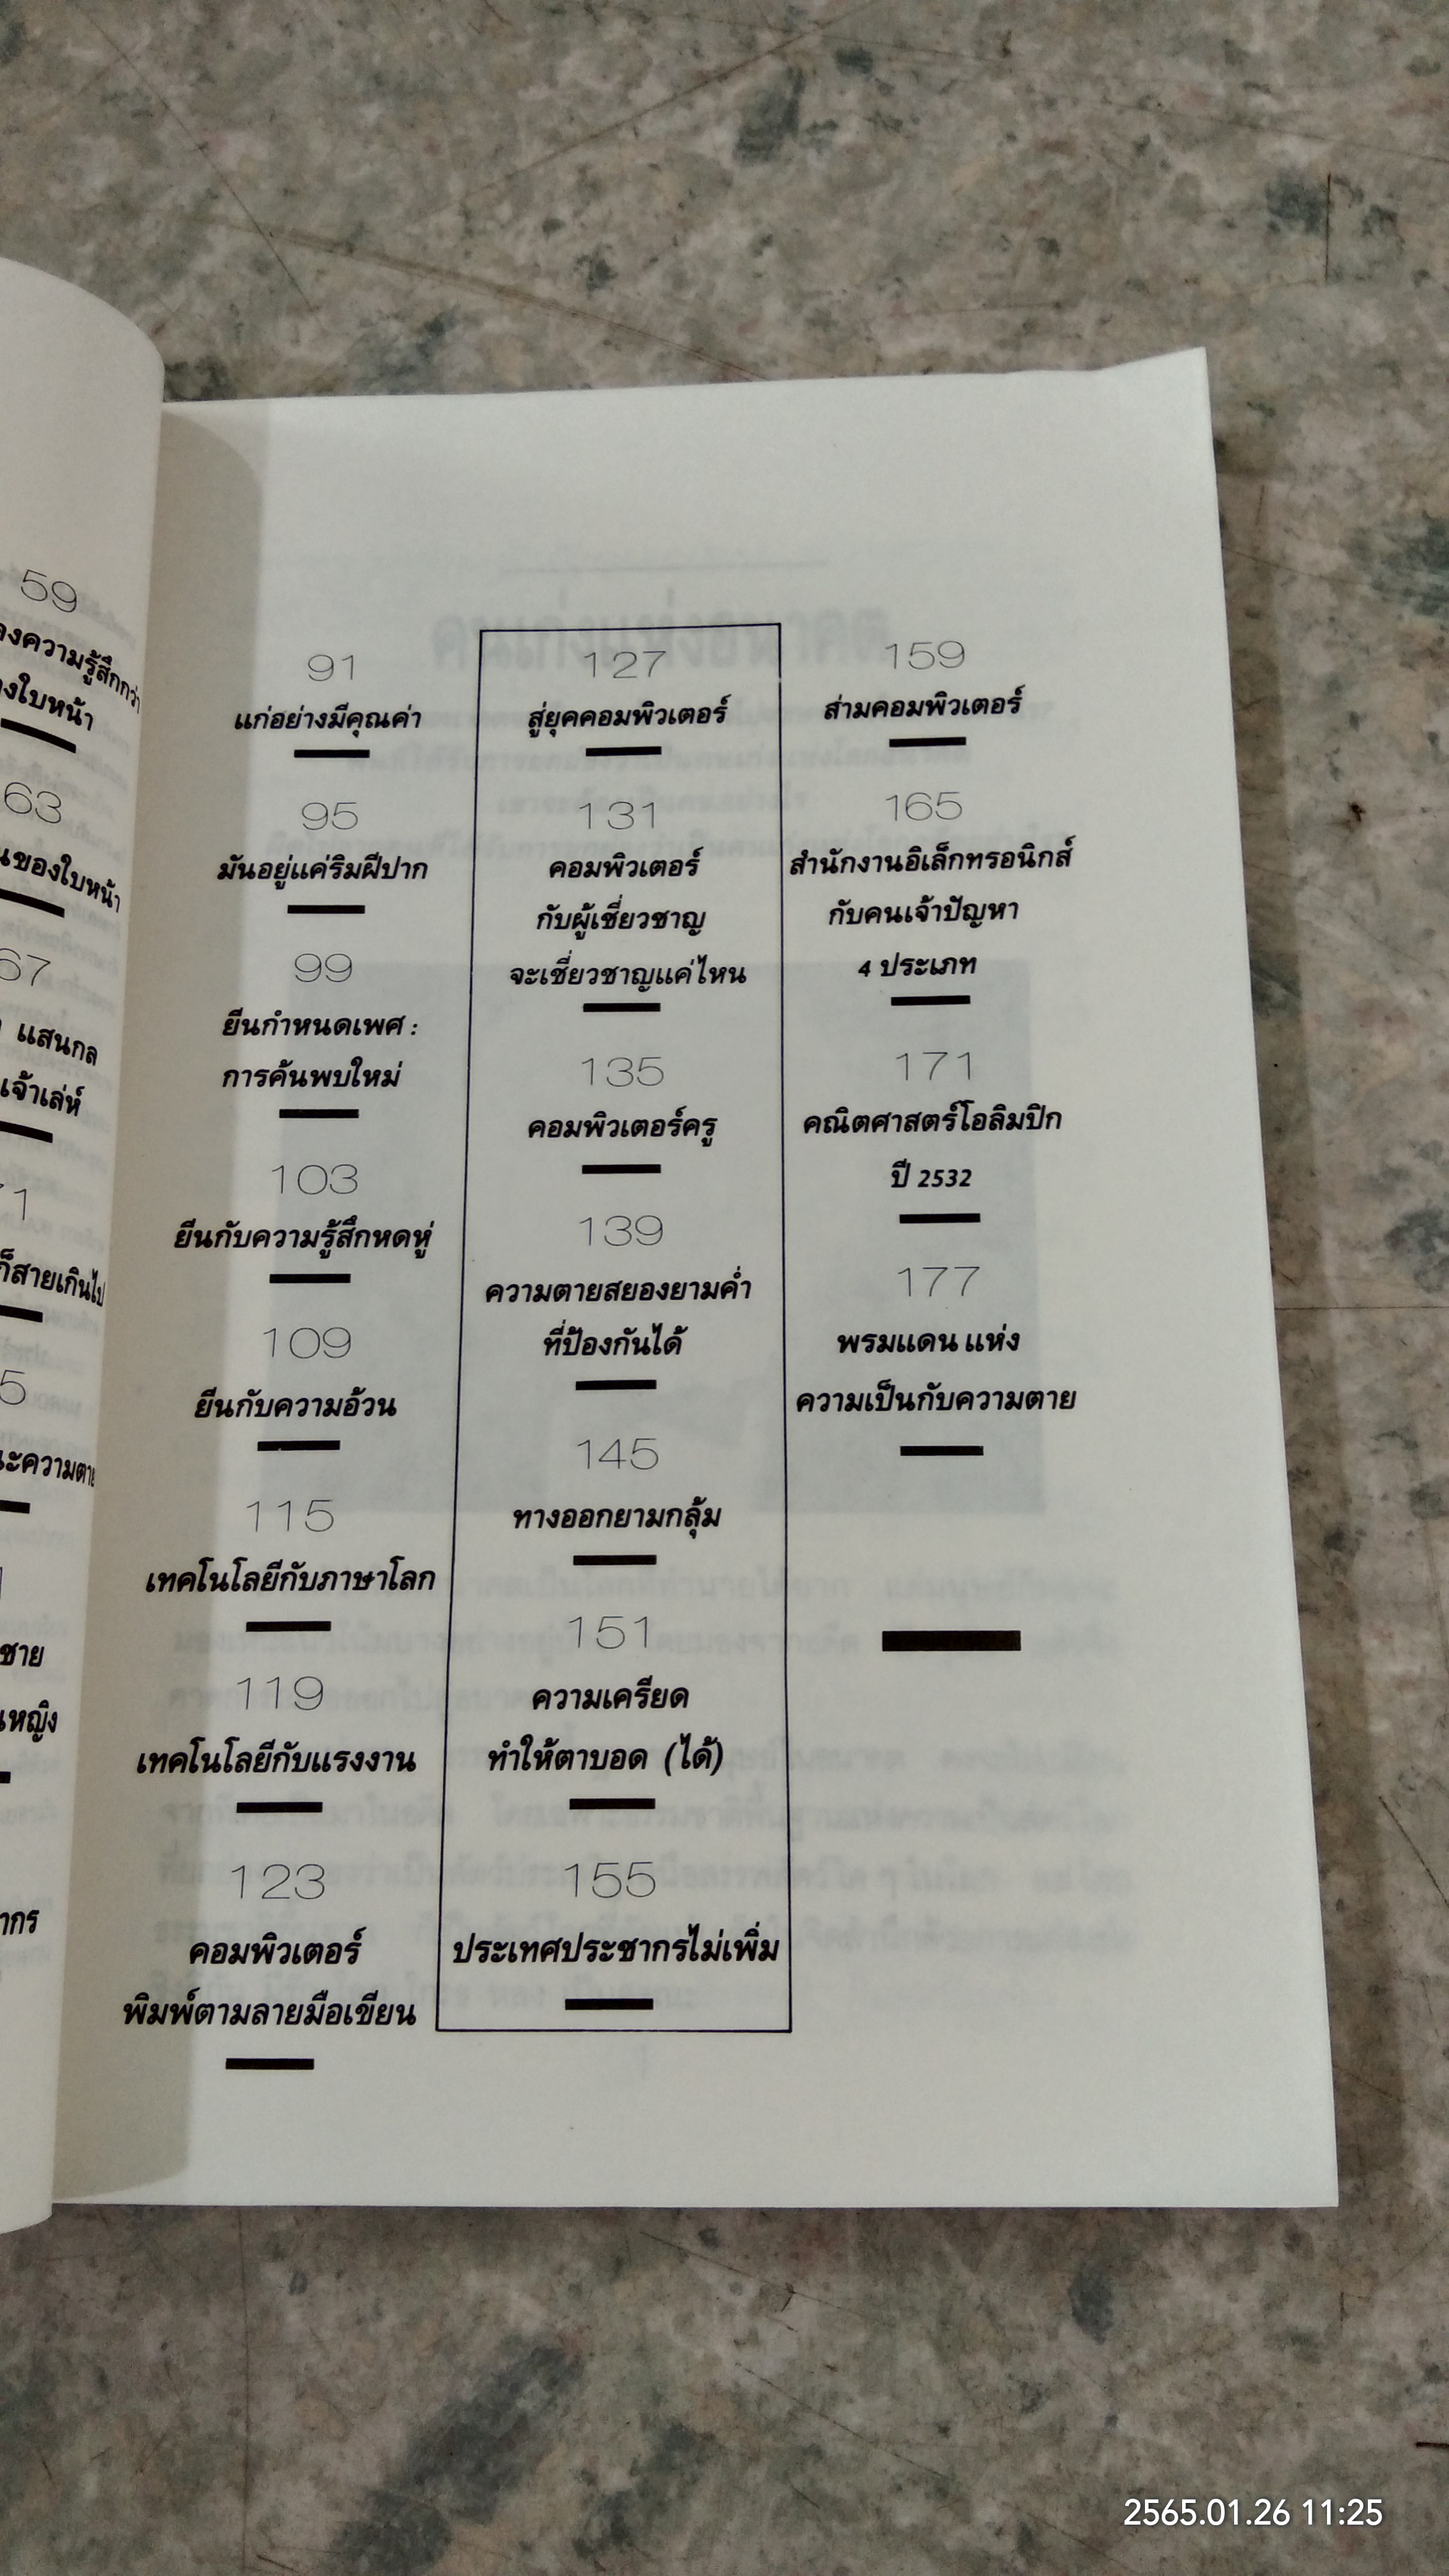 59
63
67
แสนกล
เจ้าเล่ห์
ก็สายเกินไป
91
แก่อย่างมีคุณค่า
95
มันอยู่แค่ริมฝีปาก
99
ยีนกำหนดเพศ :
การค้นพบใหม่
103
ยีนกับความรู้สึกหดหู่
109
ยีนกับความอ้วน
115
เทคโนโลยีกับภาษาโลก
119
เทคโนโลยีกับแรงงาน
123
คอมพิวเตอร์
พิมพ์ตามลายมือเขียน
127
สู่ยุคคอมพิวเตอร์
131
คอมพิวเตอร์
กับผู้เชี่ยวชาญ
จะเชี่ยวชาญแค่ไหน
135
คอมพิวเตอร์ครู
139
ความตายสยองยามค่ำ
ที่ป้องกันได้
145
ทางออกยามกลุ้ม
151
ความเครียด
ทำให้ตาบอด (ได้)
155
ประเทศประชากรไม่เพิ่ม
159
ล่ามคอมพิวเตอร์
165
สำนักงานอิเล็กทรอนิกส์
กับคนเจ้าปัญหา
4 ประเภท
171
คณิตศาสตร์โอลิมปิก
ปี 2532
177
พรมแดน แห่ง
ความเป็นกับความตาย
2565.01.26 11:25